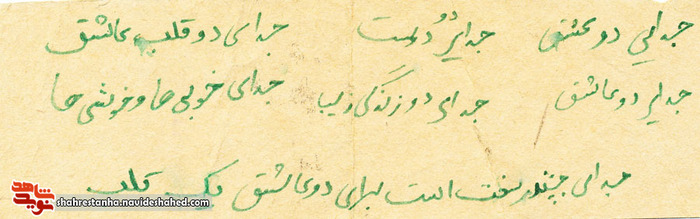 جدایی دو عشق جدایی دو دوست جدای دو قلب عاشق
جدایی دو عاشق جدای دو زندگی زیبا جدای خوبی ها و خوشی ها
جدای چقدر سخت است برای دو عاشق یک قلب
شاهد
نوید
shahrestanha.navideshahed.com